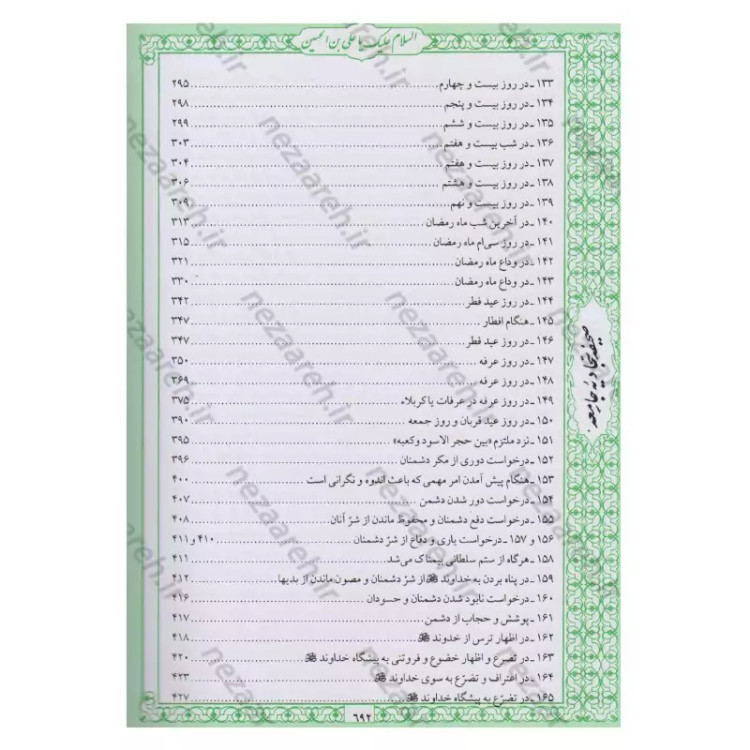 السلام علیک یا علی بن الحسین
۱۳۳ ـ در روز بیست و چهارم ........ ۲۹۵
۱۳۴ ـ در روز بیست و پنجم ........ ۲۹۸
۱۳۵ ـ در روز بیست و ششم ........ ۲۹۹
۱۳۶ ـ در شب بیست و هفتم ........ ۳۰۳
۱۳۷ ـ در روز بیست و هفتم ........ ۳۰۴
۱۳۸ ـ در روز بیست و هشتم ........ ۳۰۶
۱۳۹ ـ در روز بیست و نهم ........ ۳۰۹
۱۴۰ ـ در آخرین شب ماه رمضان ........ ۳۱۳
۱۴۱ ـ در روز سی‌ام ماه رمضان ........ ۳۱۵
۱۴۲ ـ در وداع ماه رمضان ........ ۳۲۱
۱۴۳ ـ در وداع ماه رمضان ........ ۳۳۰
۱۴۴ ـ در روز عید فطر ........ ۳۴۲
۱۴۵ ـ هنگام افطار ........ ۳۴۷
۱۴۶ ـ در روز عید فطر ........ ۳۴۷
۱۴۷ ـ در روز عرفه ........ ۳۵۰
۱۴۸ ـ در روز عرفه ........ ۳۶۹
۱۴۹ ـ در روز عرفه در عرفات یا کربلاء ........ ۳۷۵
۱۵۰ ـ در روز عید قربان و روز جمعه ........ ۳۹۰
۱۵۱ ـ نزد ملتزم «بین حجر الاسود و کعبه» ........ ۳۹۵
۱۵۲ ـ درخواست دوری از مکر دشمنان ........ ۳۹۶
۱۵۳ ـ هنگام پیش آمدن امر مهمی که باعث اندوه و نگرانی است ........ ۴۰۰
۱۵۴ ـ درخواست دور شدن دشمن ........ ۴۰۷
۱۵۵ ـ درخواست دفع دشمنان و محفوظ ماندن از شرّ آنان ........ ۴۰۸
۱۵۶ و ۱۵۷ ـ درخواست یاری و دفاع از شرّ دشمنان ........ ۴۱۰ و ۴۱۱
۱۵۸ ـ هرگاه از ستم سلطانی بیمناک می‌شد ........ ۴۱۱
۱۵۹ ـ در پناه بردن به خداوند ﷻ از شرّ دشمنان و مصون ماندن از بدیها ........ ۴۱۲
۱۶۰ ـ درخواست نابود شدن دشمنان و حسودان ........ ۴۱۶
۱۶۱ ـ پوشش و حجاب از دشمن ........ ۴۱۷
۱۶۲ ـ در اظهار ترس از خدوند ﷻ ........ ۴۱۸
۱۶۳ ـ در تضرع و اظهار خضوع و فروتنی به پیشگاه خداوند ﷻ ........ ۴۲۰
۱۶۴ ـ در اعتراف و تضرّع به سوی خداوند ﷻ ........ ۴۲۳
۱۶۵ ـ در تضرّع به پیشگاه خداوند ﷻ ........ ۴۲۷
۶۹۲
صحیفه سجادیه جامعه
nezaareh.ir